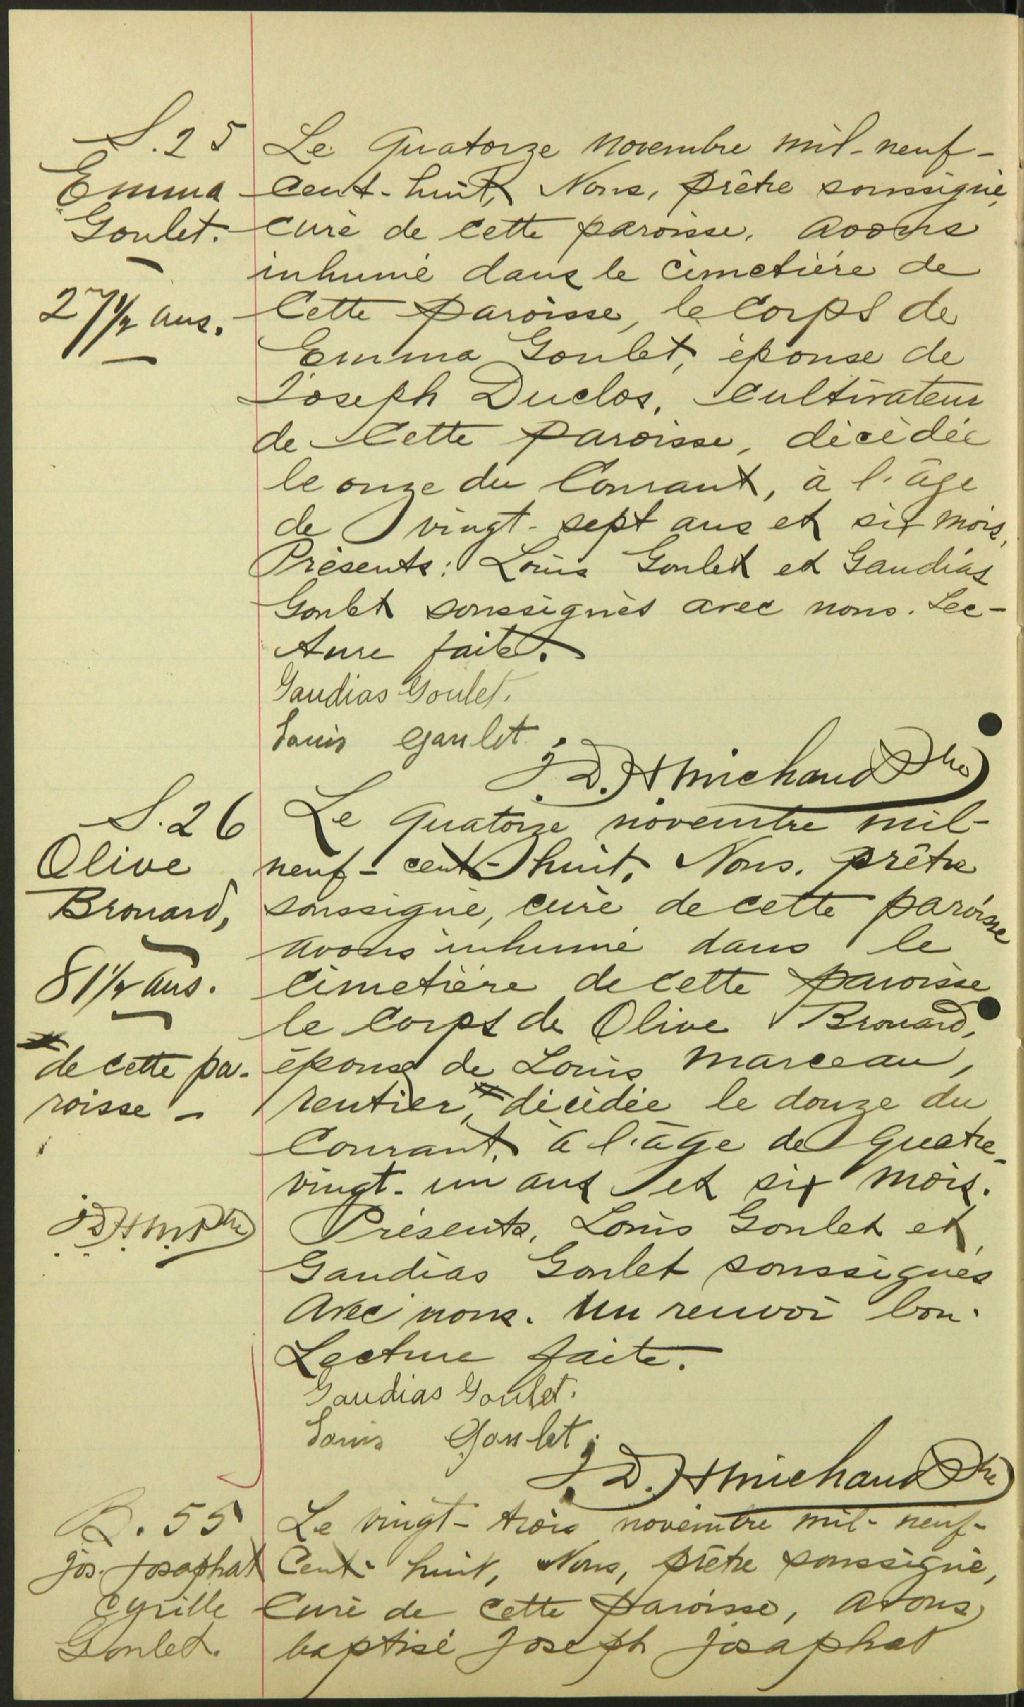 S. 25
Emma
Goulet.
27 1/2 ans.
Le quatorze novembre mil-neuf-
cent-huit, Nous, prêtre soussigné,
curé de cette paroisse, avons
inhumé dans le cimetière de
cette paroisse, le corps de
Emma Goulet, épouse de
Joseph Duclos, cultivateur
de cette paroisse, décédée
le onze du courant, à l'âge
de vingt-sept ans et six mois.
Présents: Louis Goulet et Gaudias
Goulet soussignés avec nous. Lec-
ture faite.
Gaudias Goulet.
Louis Goulet.
J. D. H Michaud Ptre
S. 26
Olive
Brouard,
81 1/2 ans.
# de cette pa-
roisse -
J D H M Ptre
Le quatorze novembre mil-
neuf-cent-huit, Nous, prêtre
soussigné, curé de cette paroisse
avons inhumé dans le
cimetière de cette paroisse
le corps de Olive Brouard,
épouse de Louis Marceau,
rentier, # décédée le douze du
courant, à l'âge de quatre-
vingt-un ans et six mois.
Présents, Louis Goulet et
Gaudias Goulet soussignés
avec nous. Un renvoi bon.
Lecture faite.
Gaudias Goulet.
Louis Goulet.
J. D. H Michaud Ptre
B. 55
Jos. Josaphat
Cyrille
Goulet.
Le vingt-trois novembre mil-neuf-
cent-huit, Nous, prêtre soussigné,
curé de cette paroisse, avons
baptisé Joseph Josaphat